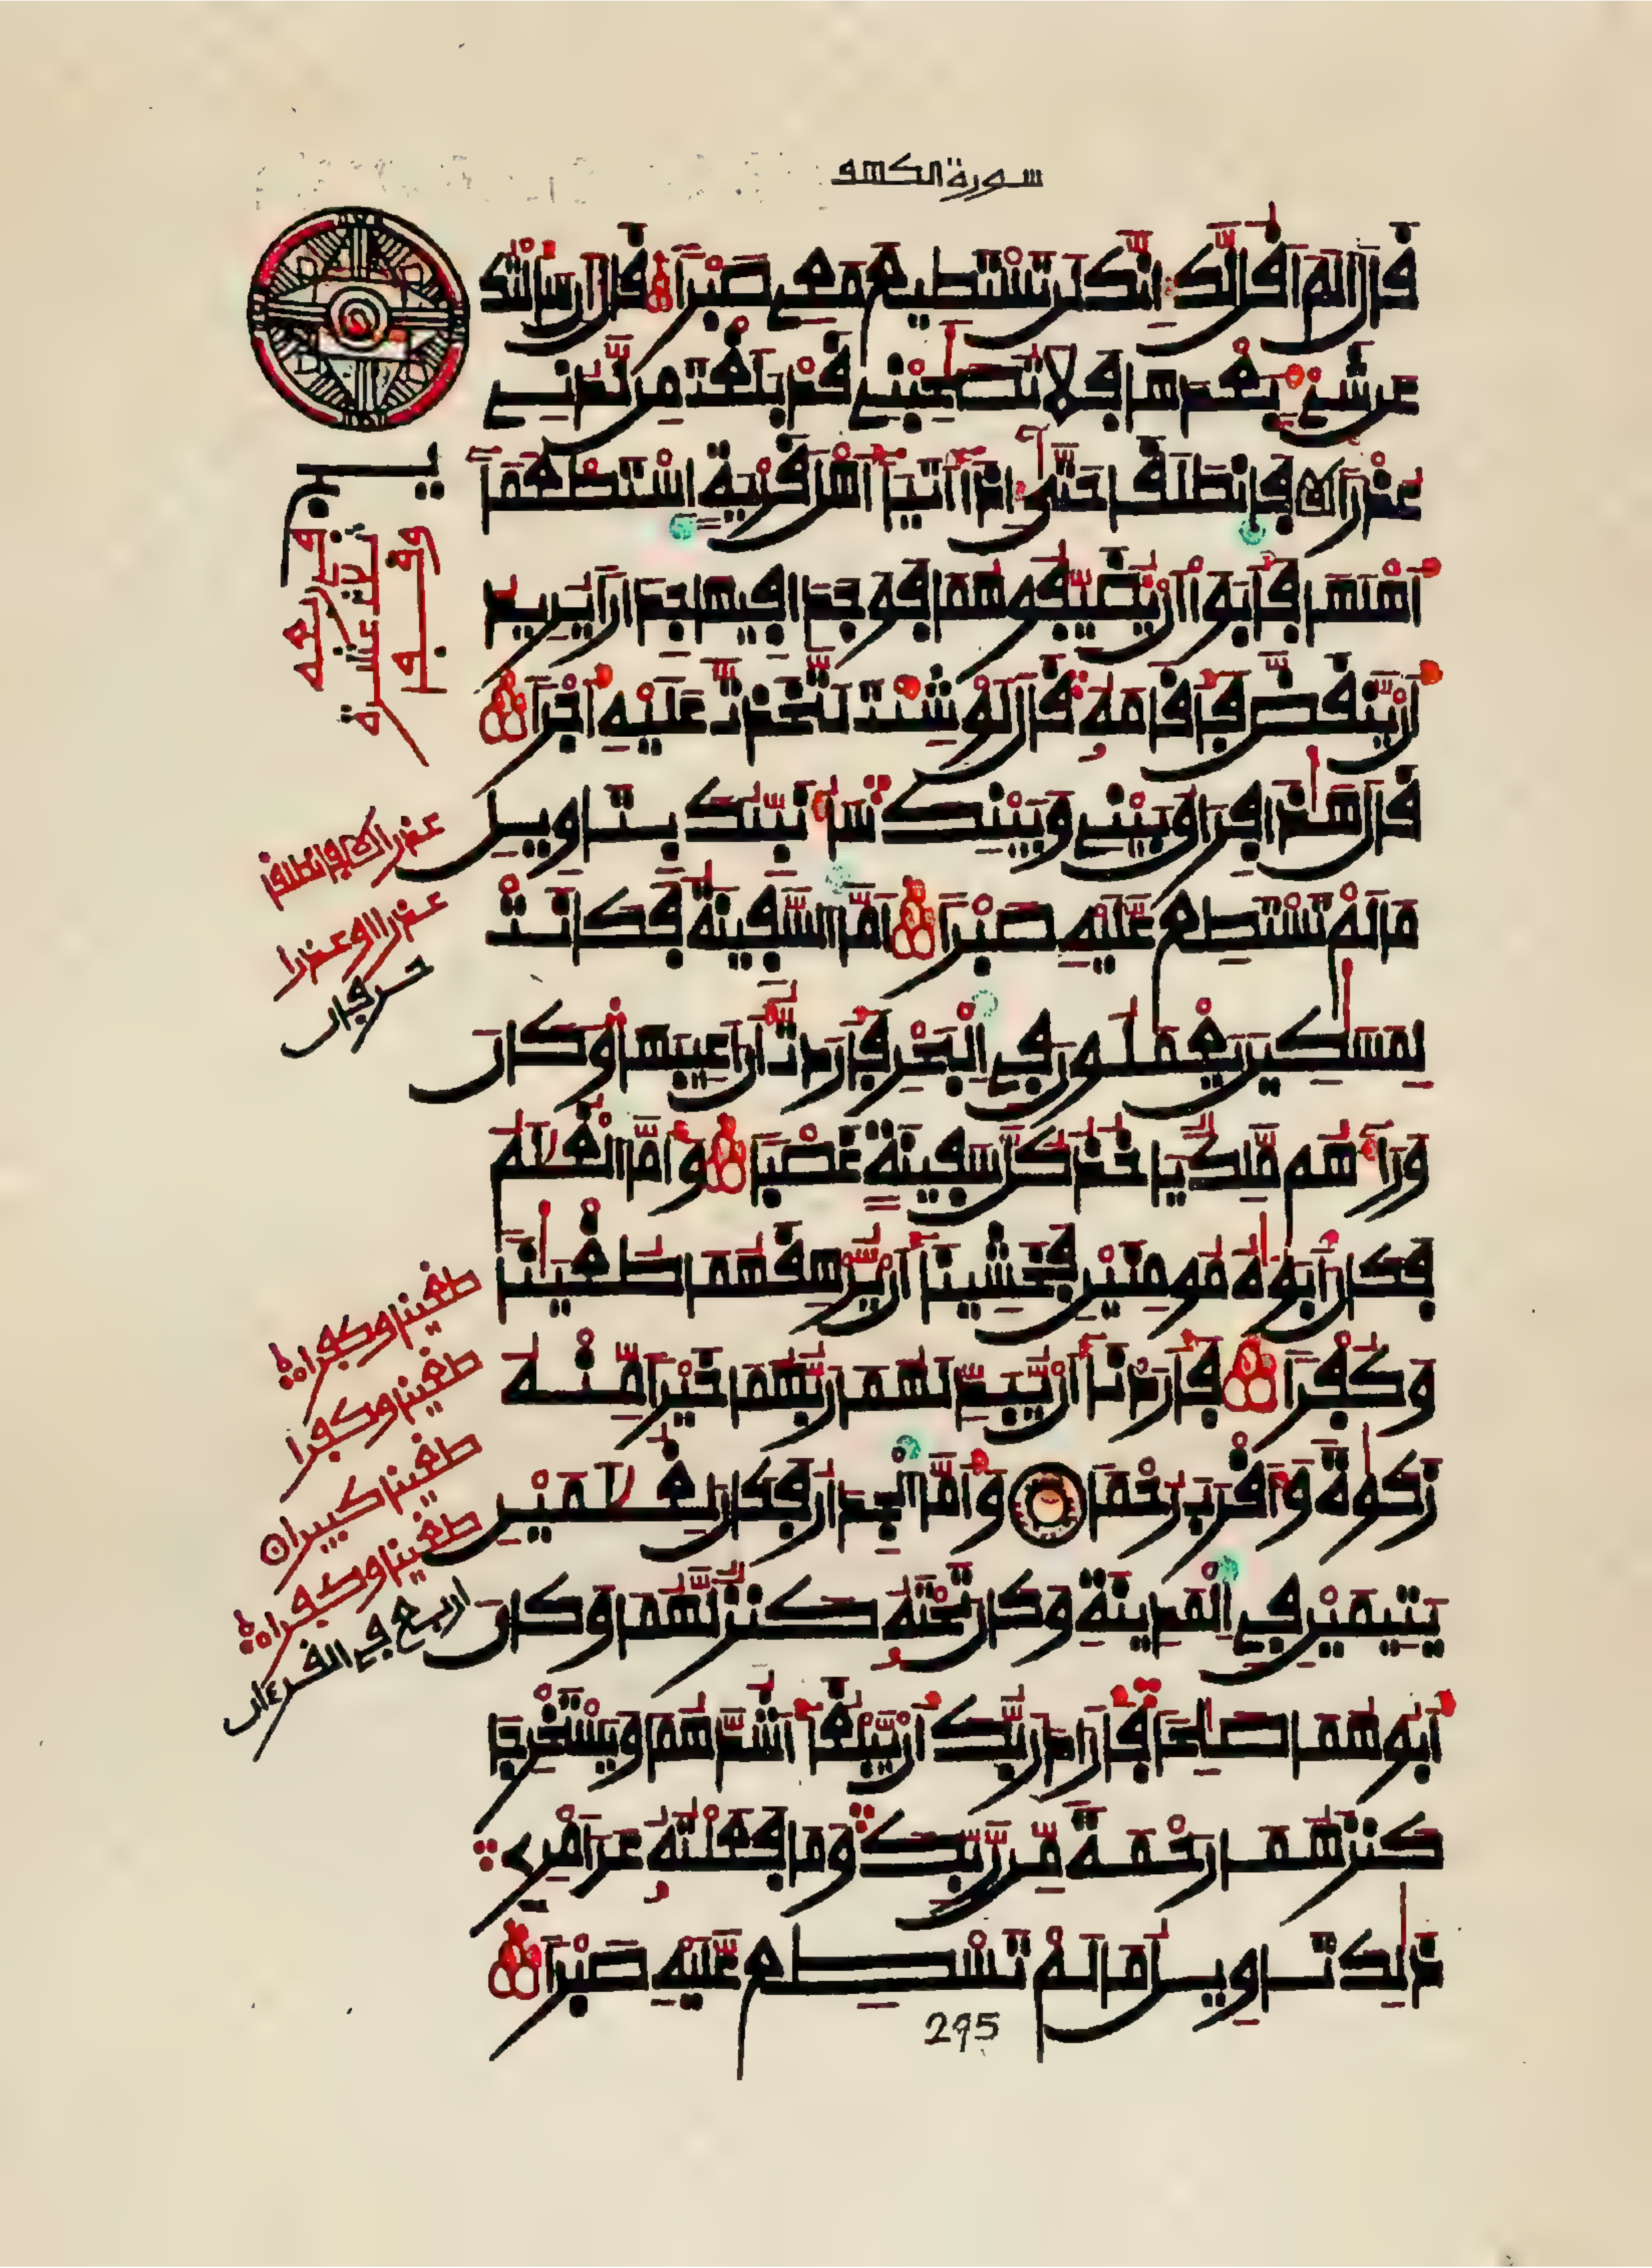 سورة الكهف
قَالَ أَلَمَ اَقُل لَّكَ إِنَّكَ لَن تَسْتَطِيعَ مَعِے صَبْرًا قَالَ إِن سَأَلْتُكَ
عَن شَےْءٍۢ بَعْدَهَا فَلَا تُصَٰحِبْنِے قَدْ بَلَغْتَ مِن لَّدُنِے
عُذْرًا فَانطَلَقَا حَتَّىٰٓ إِذَآ أَتَيَآ أَهْلَ قَرْيَةٍ اِسْتَطْعَمَآ
أَهْلَهَا فَأَبَوَاْ اَنْ يُّضَيِّفُوهُمَا فَوَجَدَا فِيهَا جِدَارًا يُرِيدُ
أَنْ يَّنقَضَّ فَأَقَامَهُۥ قَالَ لَوْ شِئْتَ لَتَّخَذتَّ عَلَيْهِ أَجْرًا
قَالَ هَٰذَا فِرَاقُ بَيْنِے وَبَيْنِكَ سَأُنَبِّئُكَ بِتَاوِيلِ
مَا لَمْ تَسْتَطِع عَّلَيْهِ صَبْرًا أَمَّا اَلسَّفِينَةُ فَكَانَتْ
لِمَسَٰكِينَ يَعْمَلُونَ فِے اِلْبَحْرِ فَأَرَدتُّ أَنَ اَعِيبَهَا وَكَانَ
وَرَآءَهُم مَّلِكٌ يَاخُذُ كُلَّ سَفِينَةٍ غَصْبًا وَأَمَّا اَلْغُلَٰمُ
فَكَانَ أَبَوَٰهُ مُومِنَيْنِ فَخَشِينَآ أَنْ يُّرْهِقَهُمَا طُغْيَٰنًا
وَكُفْرًا فَأَرَدْنَآ أَنْ يُّبَدِّلَهُمَا رَبُّهُمَا خَيْرًا مِّنْهُ
زَكَوٰةً وَأَقْرَبَ رُحْمًا وَأَمَّا اَلْجِدَارُ فَكَانَ لِغُلَٰمَيْنِ
يَتِيمَيْنِ فِے اِلْمَدِينَةِ وَكَانَ تَحْتَهُۥ كَنزٌ لَّهُمَا وَكَانَ
أَبُوهُمَا صَٰلِحًا فَأَرَادَ رَبُّكَ أَنْ يَّبْلُغَآ أَشُدَّهُمَا وَيَسْتَخْرِجَا
كَنزَهُمَا رَحْمَةً مِّن رَّبِّكَ وَمَا فَعَلْتُهُۥ عَنَ اَمْرِے
ذَٰلِكَ تَاوِيلُ مَا لَمْ تَسْطِع عَّلَيْهِ صَبْرًا
295
عذرا فانطلقا
عذرا او عذرا
حرفان
طغينا وكفرا
طغينا وكفرا
طغينا كبيرا
طغينا وكفرا
اربع في القرءان